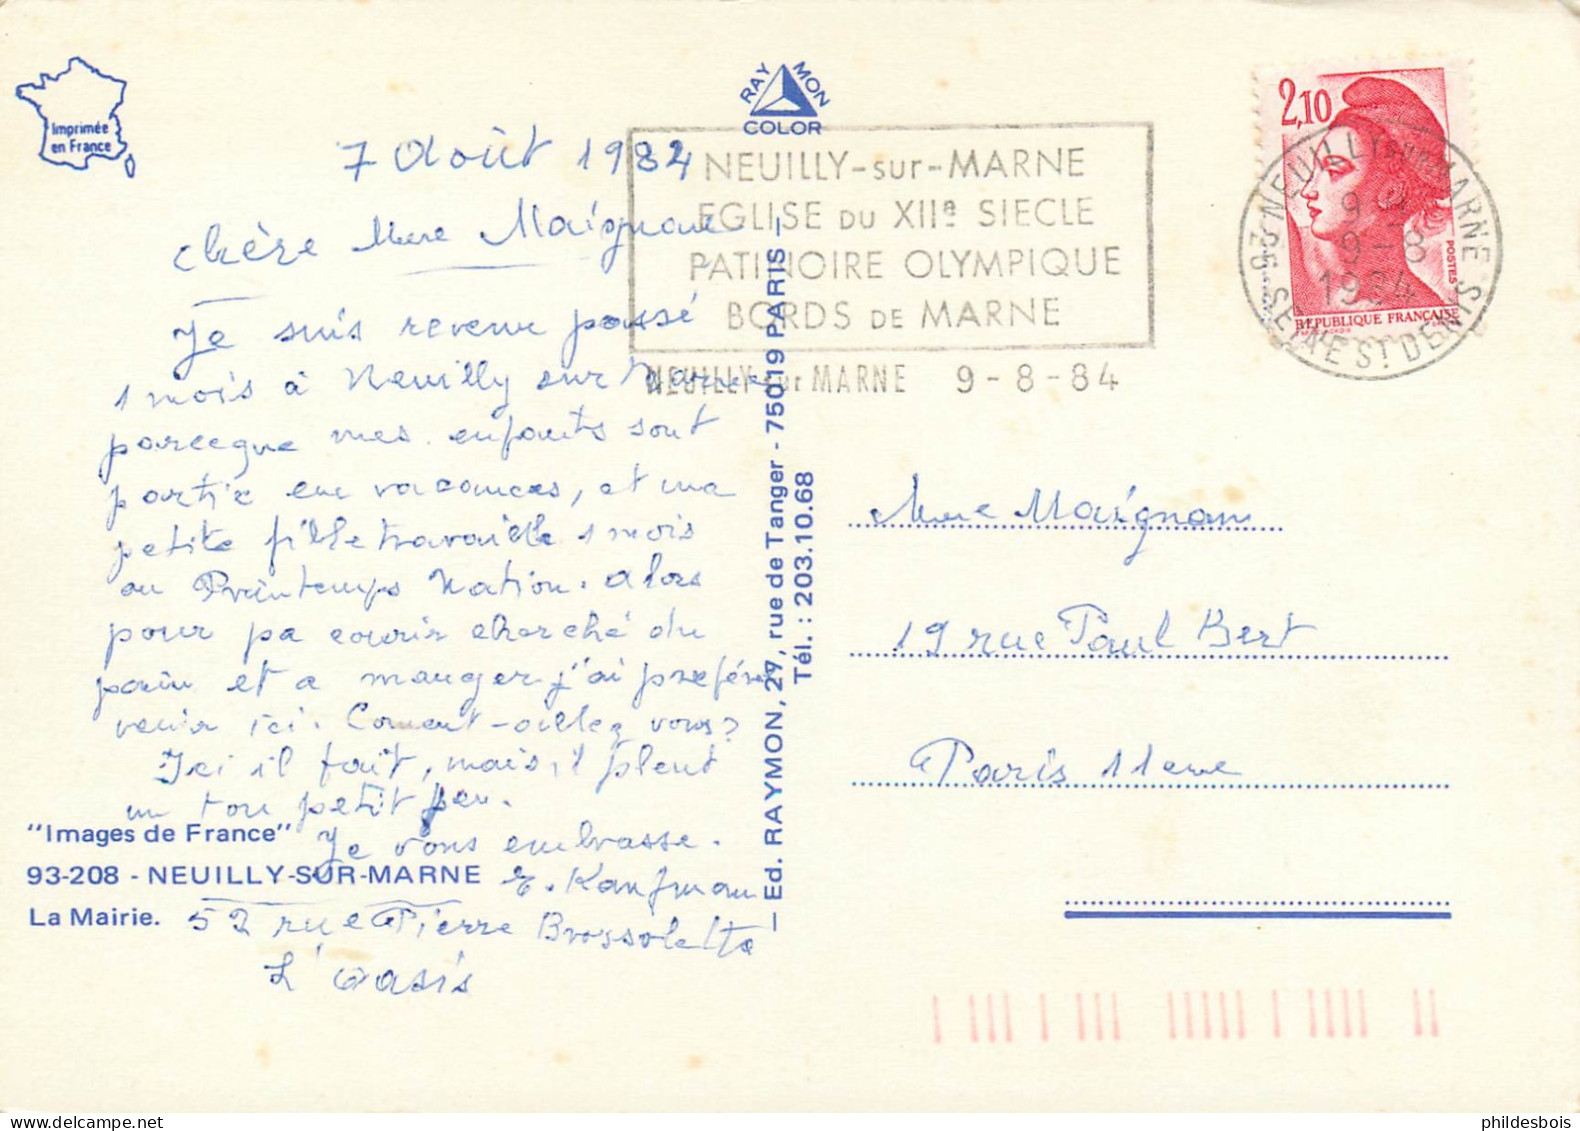 Imprimée
en France
RAYMON
COLOR
7 Août 1984
chère Mme Maignan
Je suis revenue passé
1 mois à Neuilly sur Marne
parceque mes enfants sont
partie en vacances, et ma
petite fille travaille 1 mois
au Printemps Nation. alors
pour pa courir cherché du
pain et a manger j'ai preféré
venir ici. Coment-aillez vous?
Ici il fait, mais il pleut
un tou petit peu.
Je vous embrasse.
E. Kaufman
52 rue Pierre Brossolette
L'oasis
"Images de France"
93-208 - NEUILLY-SUR-MARNE
La Mairie.
Ed. RAYMON, 27, rue de Tanger - 75019 PARIS
Tél. : 203.10.68
NEUILLY-sur-MARNE
EGLISE DU XIIe SIECLE
PATINOIRE OLYMPIQUE
BORDS DE MARNE
NEUILLY sur MARNE 9-8-84
2,10
POSTES
REPUBLIQUE FRANÇAISE
93 NEUILLY SUR MARNE
9-8
1984
SEINE ST DENIS
Mme Maignan
19 rue Paul Bert
Paris 11eme
phildesbois